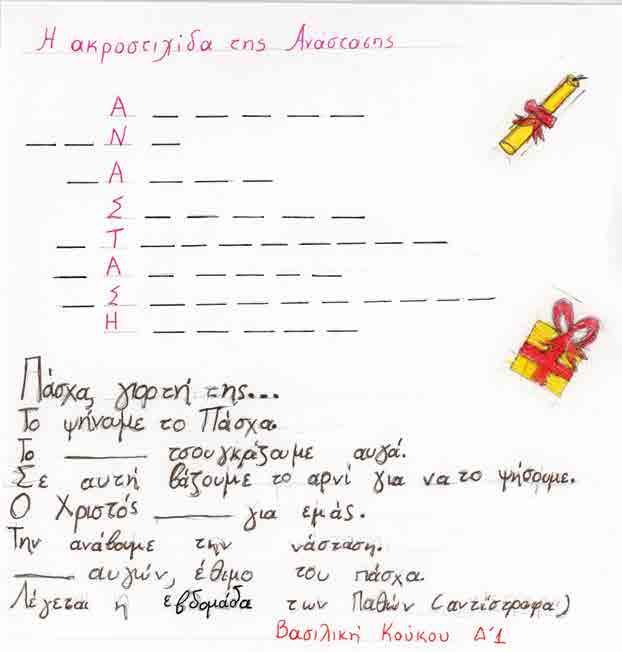 Η ακροστιχίδα της Ανάστασης
Α _ _ _ _ _ _
_ _ Ν _
_ Α _ _ _
Σ _ _ _ _ _
_ Τ _ _ _ _ _ _ _ _ _
_ Α _ _ _ _ _
_ Σ _ _ _ _ _ _ _ _ _ _
Η _ _ _ _ _ _
Πάσχα, γιορτή της...
Το ψήνουμε το Πάσχα.
Το ____ τσουγκρίζουμε αυγά.
Σε αυτή βάζουμε το αρνί για να το ψήσουμε.
Ο Χριστός ____ για εμάς.
Την ανάβουμε την νάσταση.
____ αυγών, έθιμο του πάσχα.
Λέγεται η εβδομάδα των Παθών (αντίστροφα)
Βασιλική Κούκου Δ'1